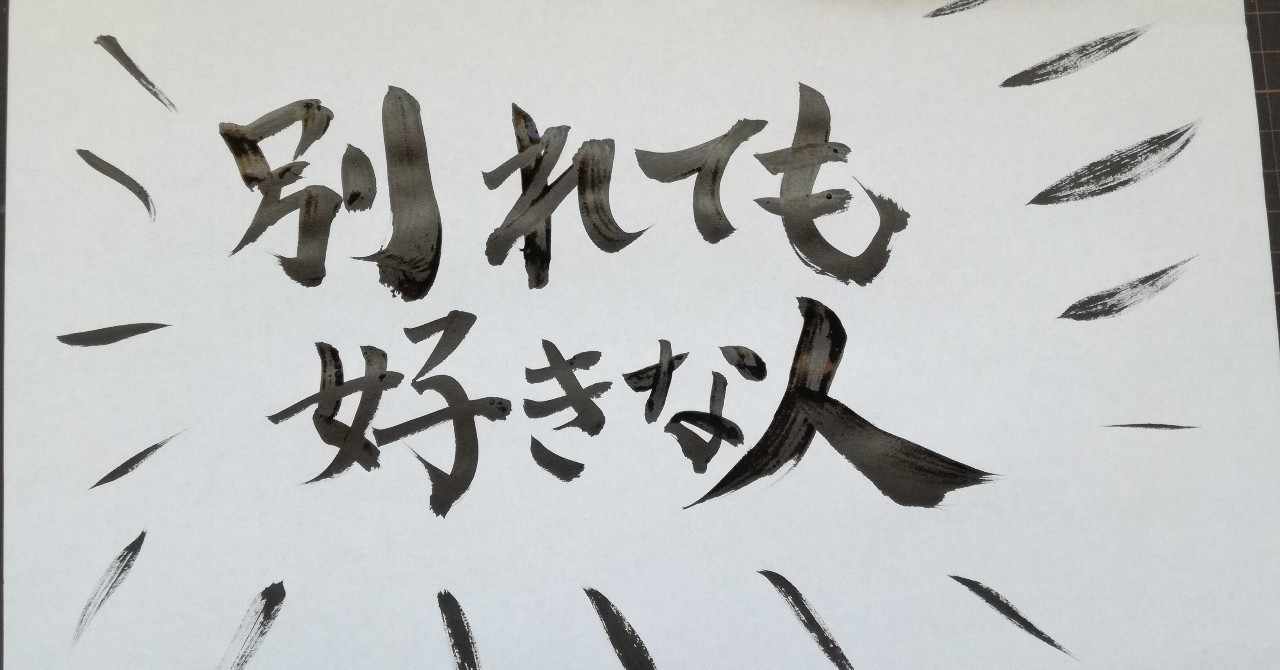 別れても
好きな人